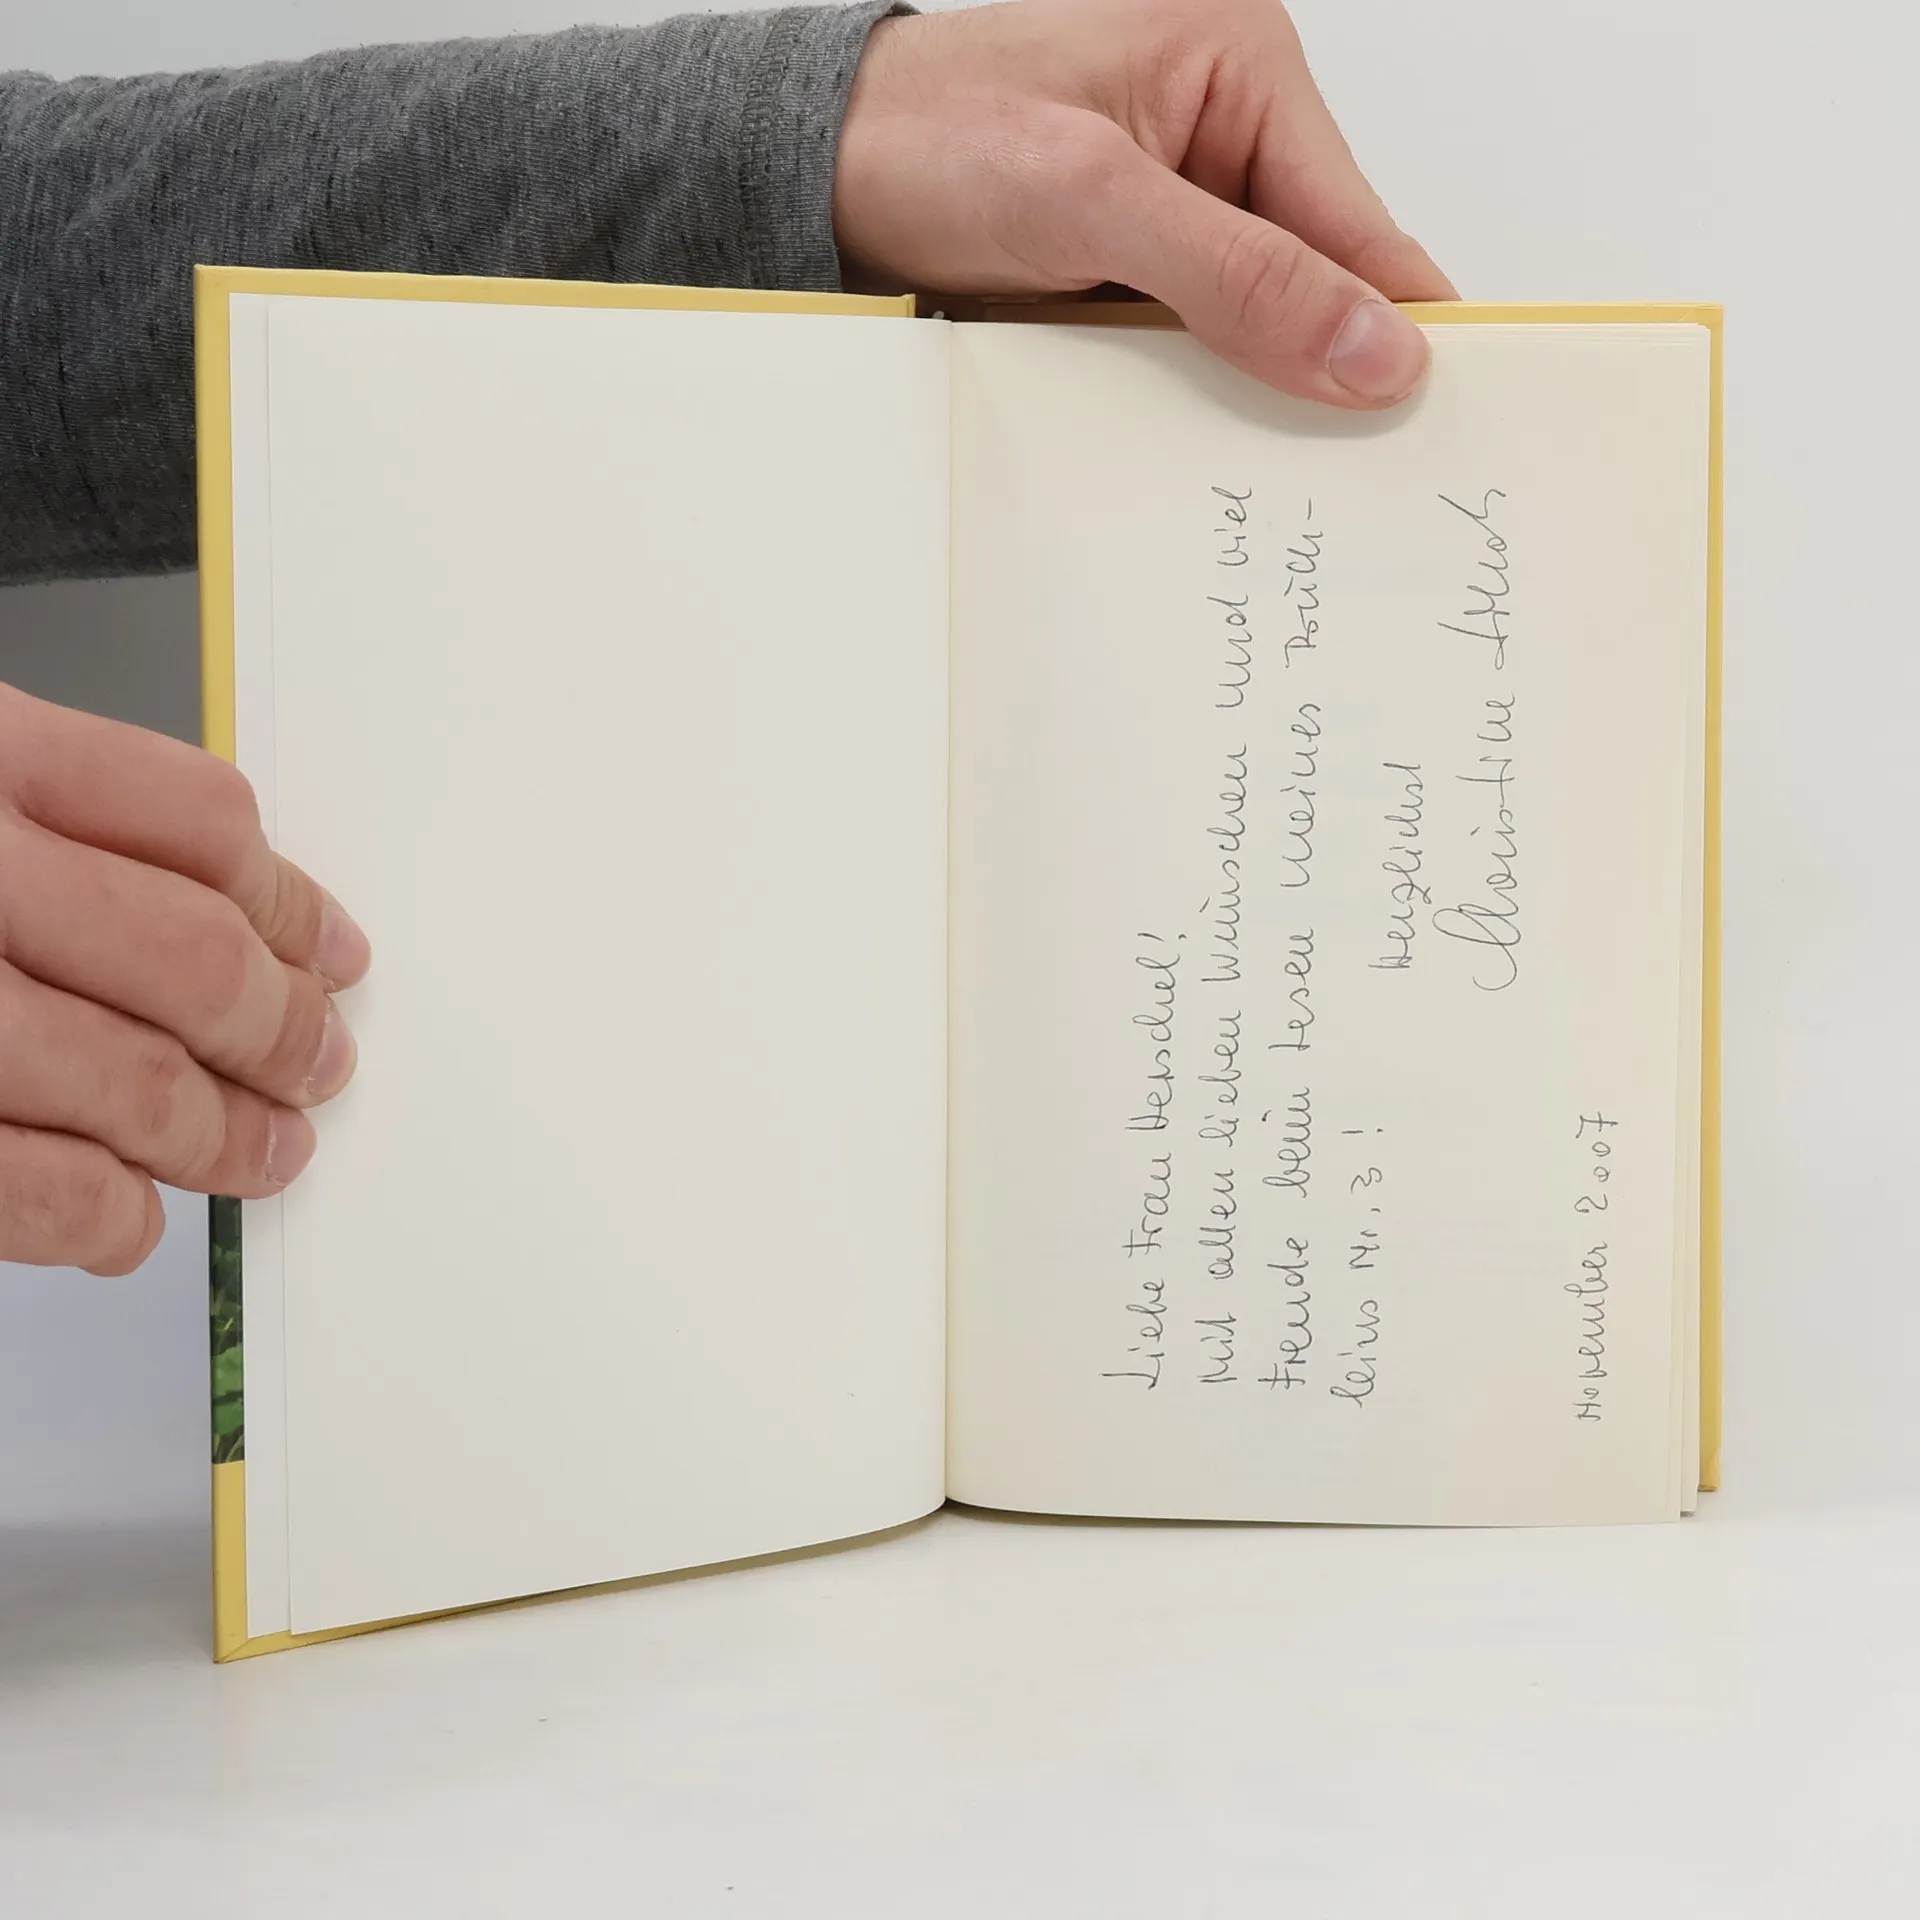 Liebe Frau Herschel!
Mit allen lieben Wünschen und viel
Freude beim Lesen meines Büch-
leins Nr. 3!
Herzlichst
Christine
November 2007